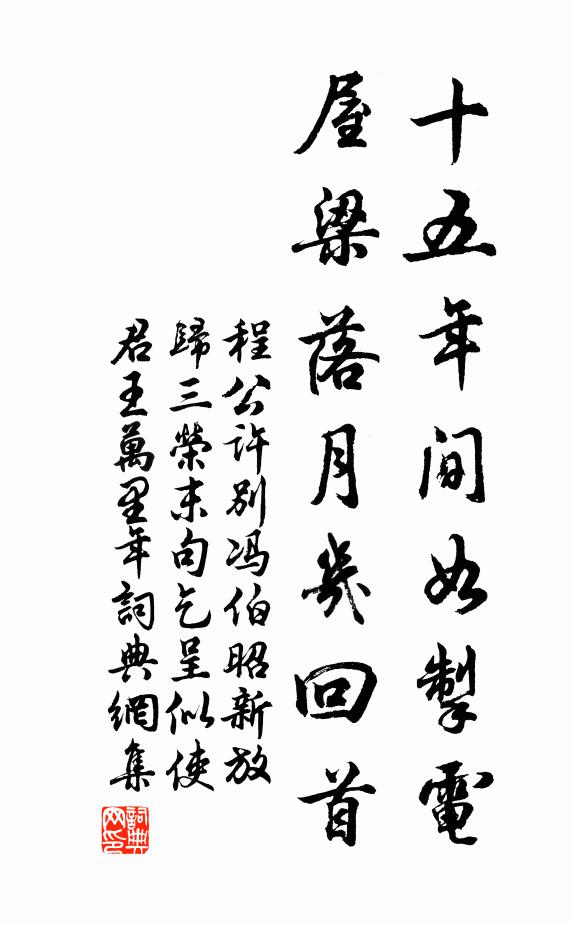 十五年間如掣電
屋梁落月幾回首
程公許別馮伯昭新放
歸三榮末句乞呈似使
君王萬里年詞典網集
詞典网印